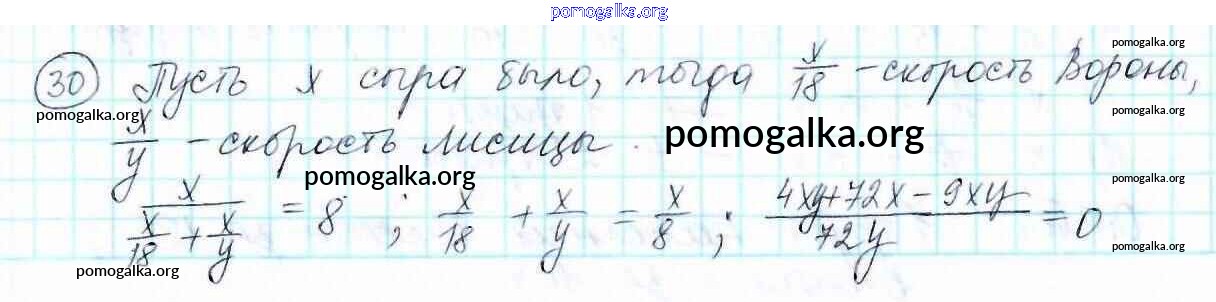 pomogalka.org
30 Пусть x сыра было, тогда x/18 - скорость Вороны,
pomogalka.org
pomogalka.org
pomogalka.org
x/y - скорость лисицы.
pomogalka.org
pomogalka.org
pomogalka.org
x/(x/18 + x/y) = 8 ; x/18 + x/y = x/8 ; (4xy+72x-9xy)/72y = 0
pomogalka.org
pomogalka.org